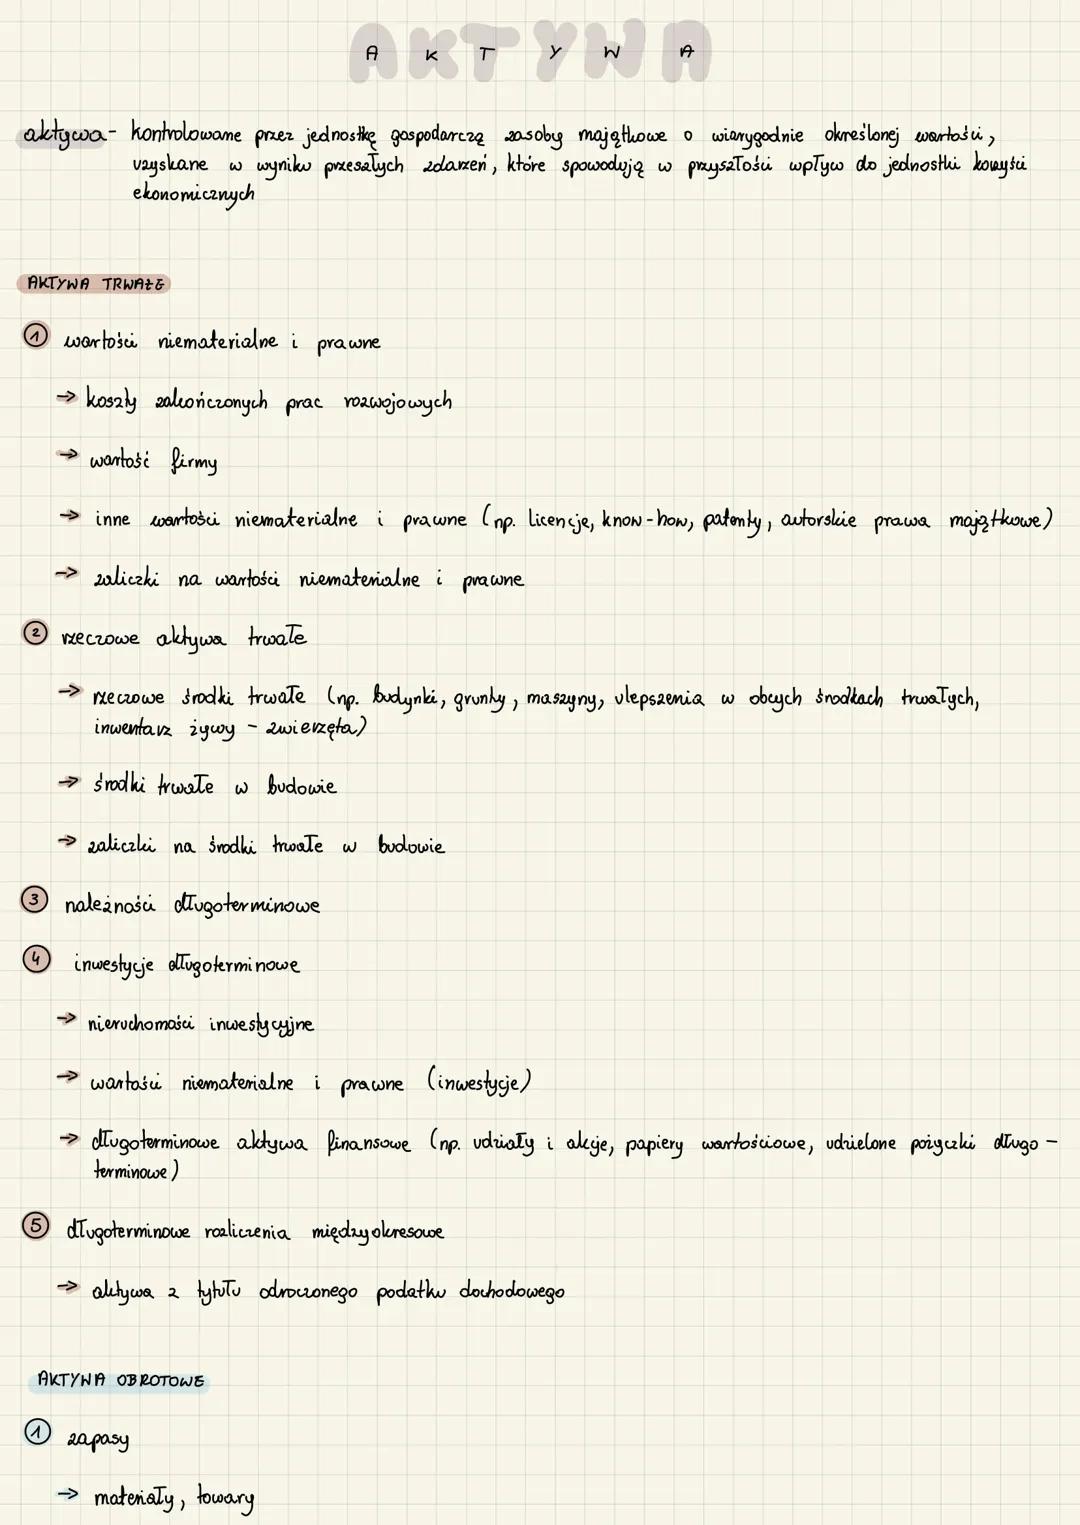 AKTYWA
aktywa - kontrolowane przez jednostkę gospodarczą zasoby majątkowe o wiarygodnie określonej wartości,
uzyskane w wyniku przeszłych zdarzeń, które spowodują w przyszłości wpływ do jednostki korzyści
ekonomicznych
AKTYWA TRWAŁE
1 wartości niematerialne i prawne
→ koszty zakończonych prac rozwojowych
→ wartość firmy
→ inne wartości niematerialne i prawne (np. licencje, know-how, patenty, autorskie prawa majątkowe)
→ zaliczki na wartości niematerialne i prawne
2 rzeczowe aktywa trwałe
→ rzeczowe środki trwałe (np. budynki, grunty, maszyny, ulepszenia w obcych środkach trwałych,
inwentarz żywy - zwierzęta)
→ środki trwałe w budowie
→ zaliczki na środki trwałe w budowie
3 należności długoterminowe
4 inwestycje długoterminowe
→ nieruchomości inwestycyjne
→ wartości niematerialne i prawne (inwestycje)
→ długoterminowe aktywa finansowe (np. udziały i akcje, papiery wartościowe, udzielone pożyczki długo-
terminowe)
5 długoterminowe rozliczenia międzyokresowe
→ aktywa z tytułu odroczonego podatku dochodowego
AKTYWA OBROTOWE
1 zapasy
→ materiały, towary